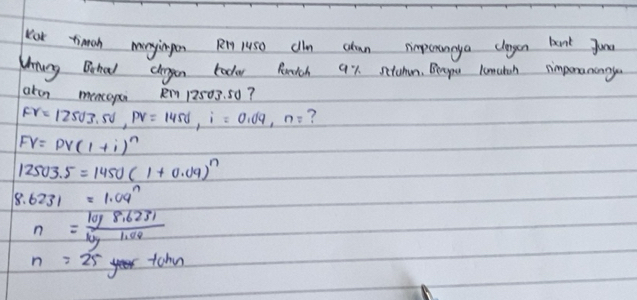 Kak Timah menyimpan RM 1450 dlm akan simpanannya dengan bank Juna
Untung Berhad dengan kadar faedah 9% setahun. Berapa lamakah simpanannya
akan mencapai RM 12503.50?
FV = 12503.50, PV = 1450, i = 0.09, n = ?
FV = PV(1+i)^n
12503.5 = 1450(1+0.09)^n
8.6231 = 1.09^n
n = log 8.6231 / log 1.09
n = 25 tahun